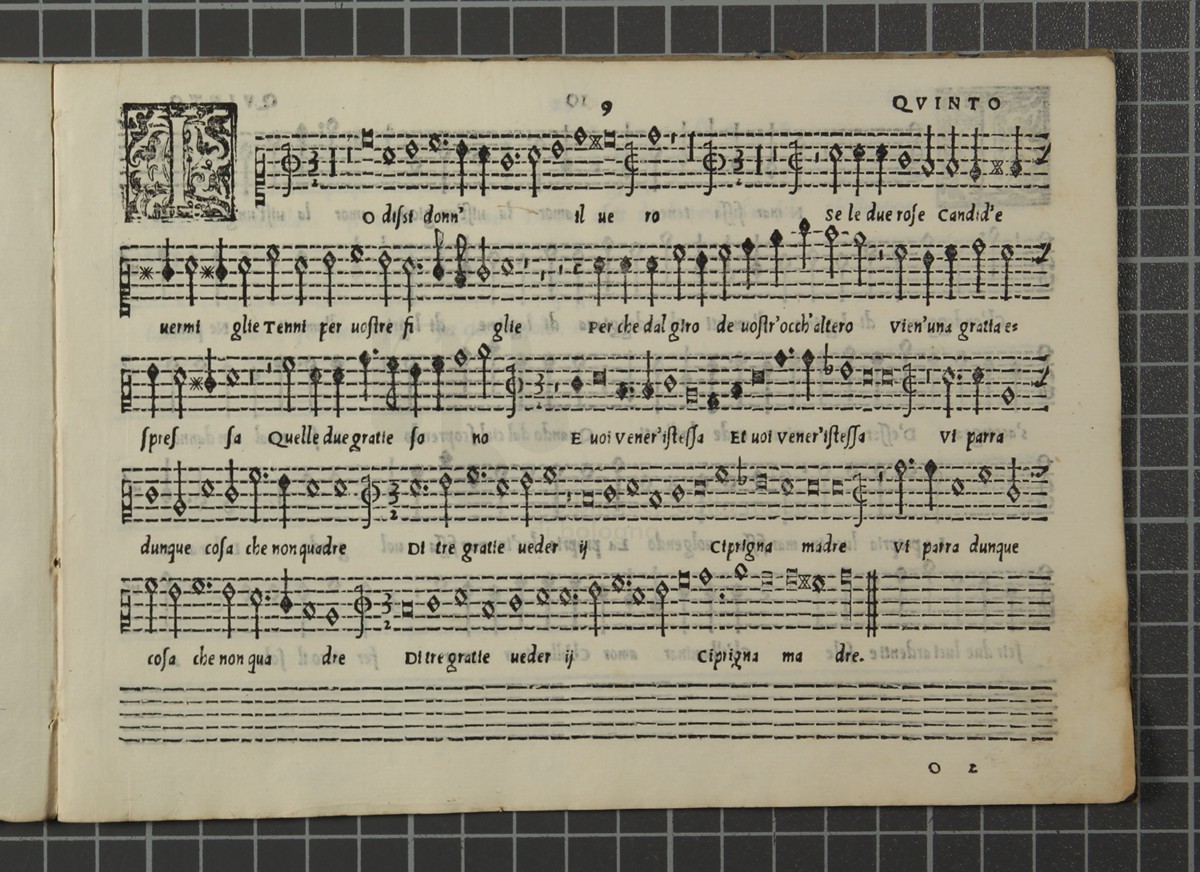 9 QVINTO
I O dissi donn' il ue ro Se le due rose Candid'e
uermi glie Tenni per uostre fi glie Per che dal giro de uostr'occh'altero Vien'una gratia es=
spres sa Quelle due gratie so no E uoi Vener'istessa Et uoi Vener'istessa Vi parra
dunque cosa che non quadre Di tre gratie ueder ij Ciprigna madre Vi parra dunque
cosa che non qua dre Di tre gratie ueder ij Ciprigna ma dre.
O 2